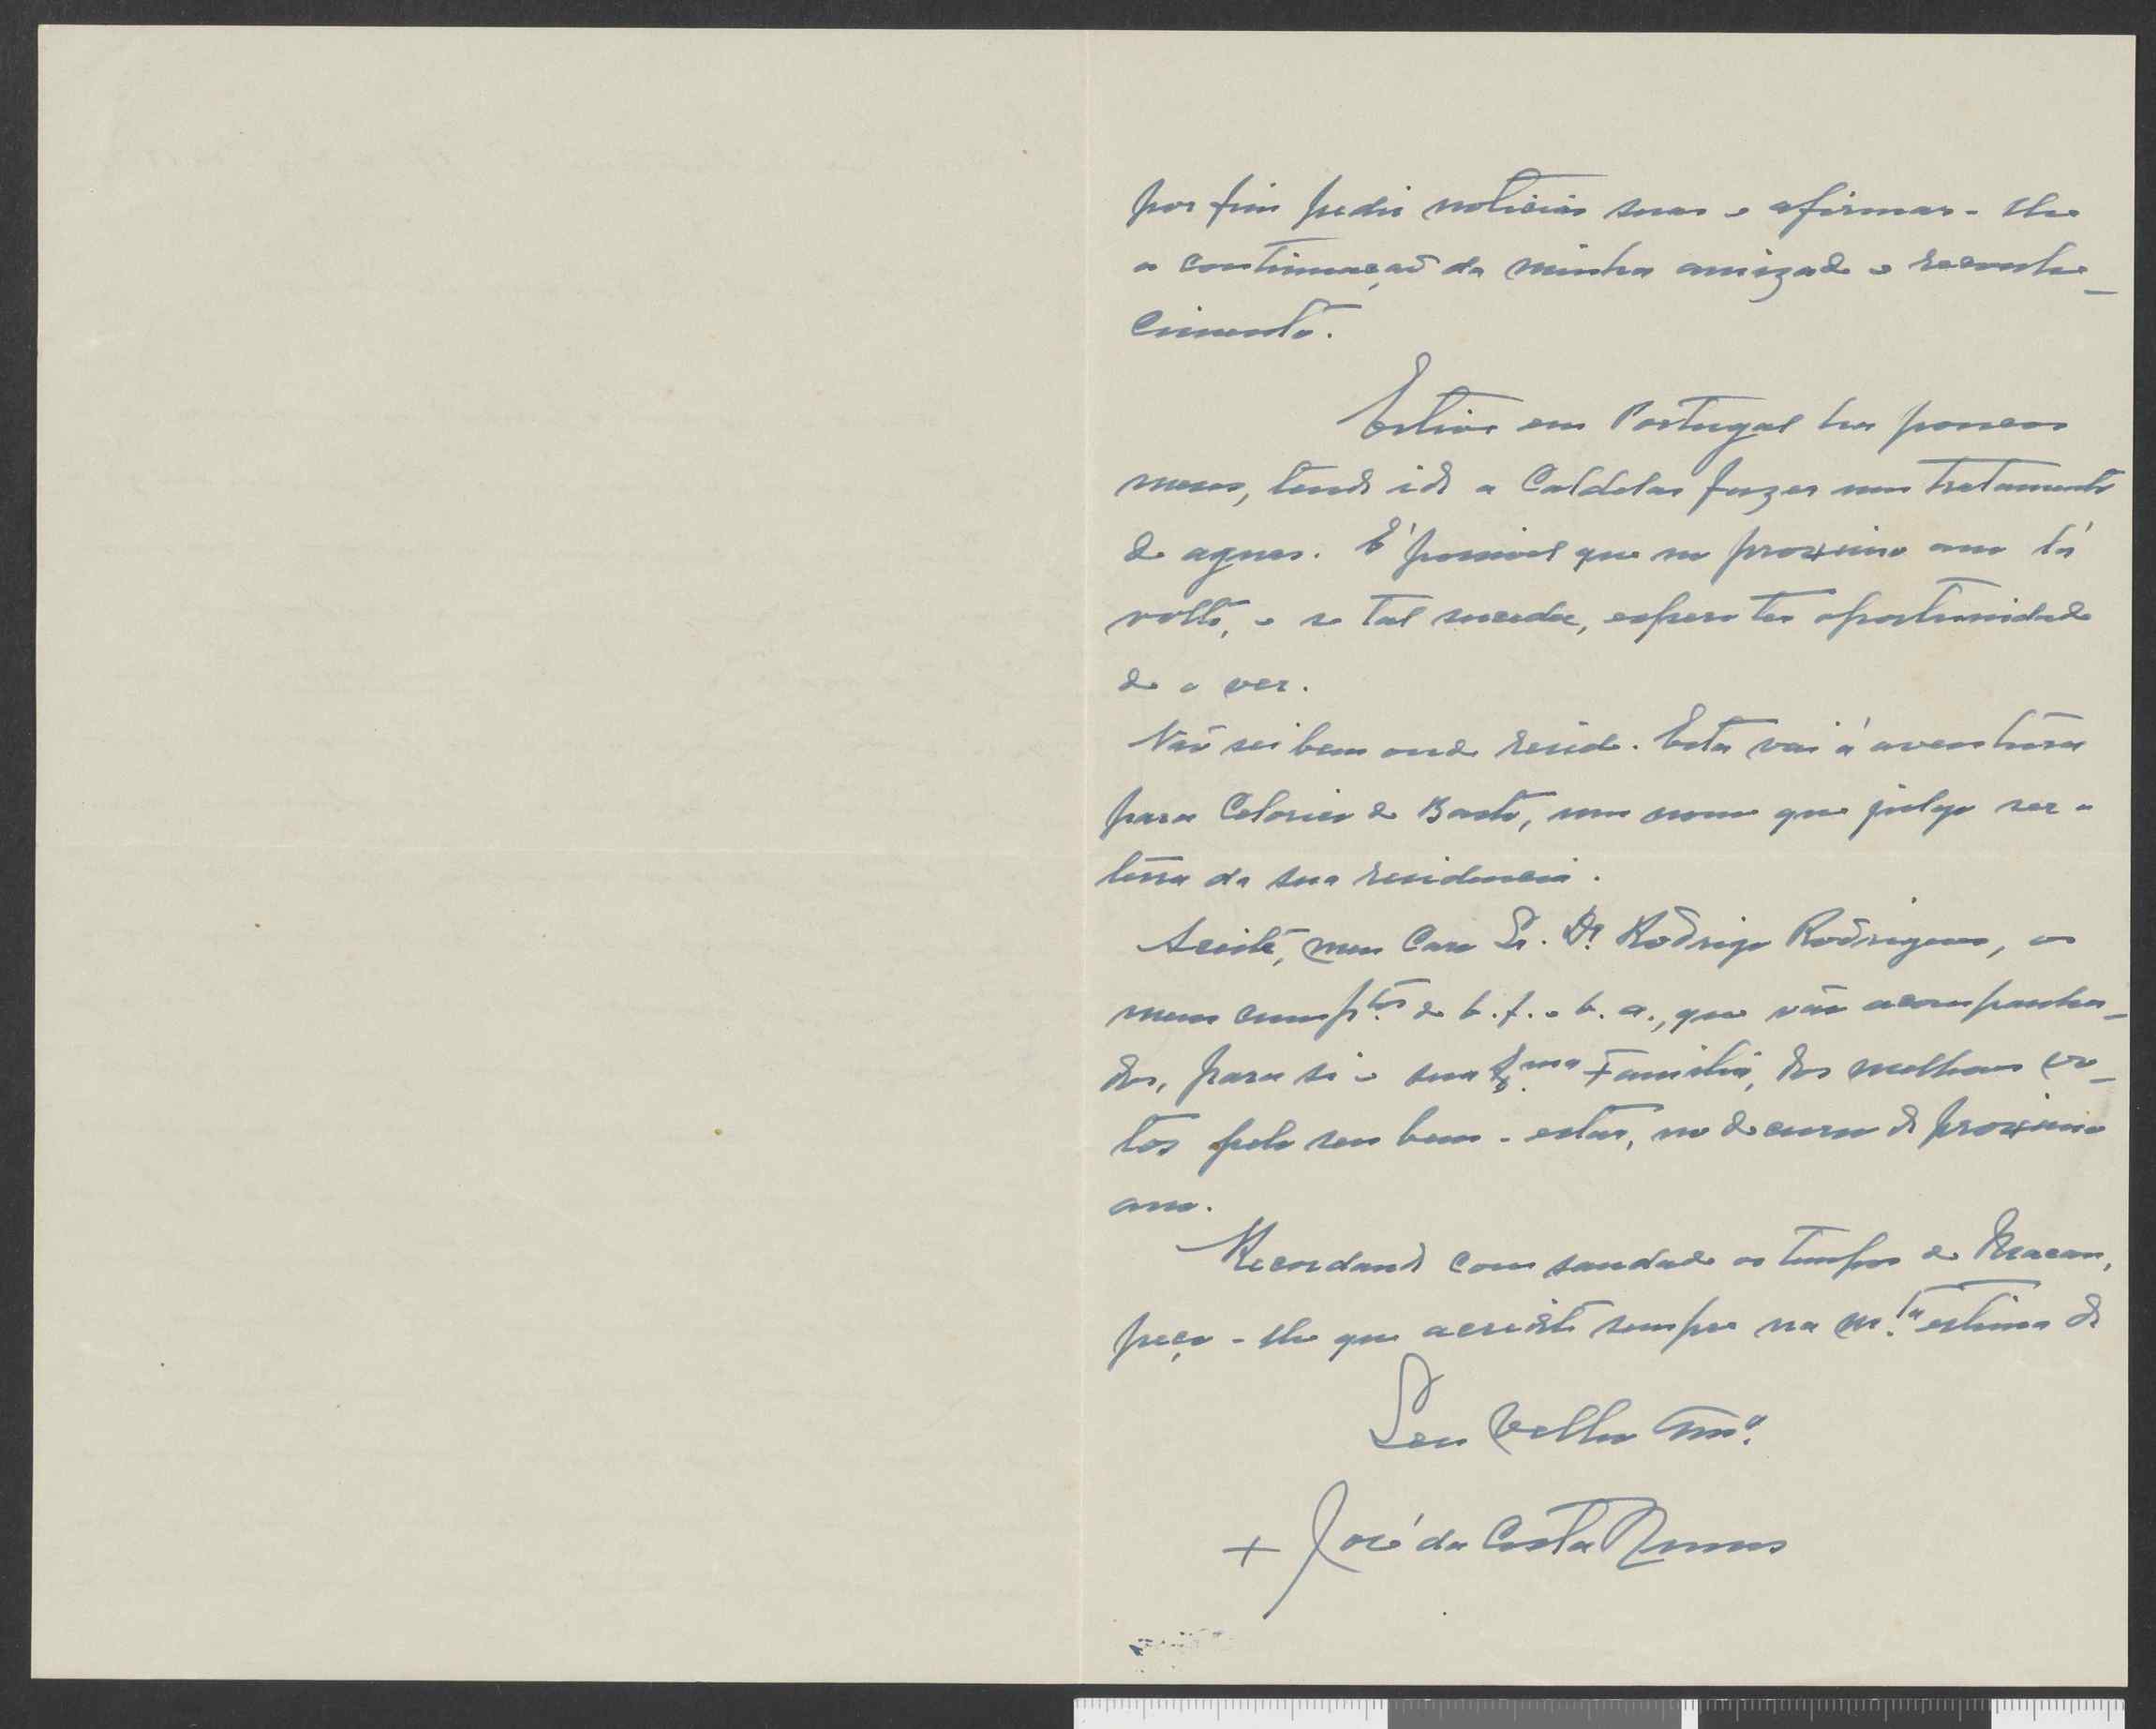 por fim pedir noticias suas e afirmar-lhe
a continuação da minha amizade e reconhe_
cimento.
Estive em Portugal ha poucos
meses, tendo ido a Caldelas fazer um tratamento
de aguas. É possivel que no proximo ano lá
volte, e se tal suceder, espero ter oportunidade
de o ver.
Não sei bem onde reside. Esta vai á aventura
para Celorico de Basto, um nome que julgo ser a
terra da sua residencia.
Aceite, meu Caro Sr. Dr. Rodrigo Rodrigues, os
meus cumptos. de b. f. e b. a., que vão acompanha_
dos, para si e sua Exma. Familia, dos melhores vo_
tos pelo seu bem-estar, no decurso do proximo
ano.
Recordando com saudade os tempos de Macau,
peço-lhe que acredite sempre na m.ta estima do
Seu Velho Amo.
+ José da Costa Nunes